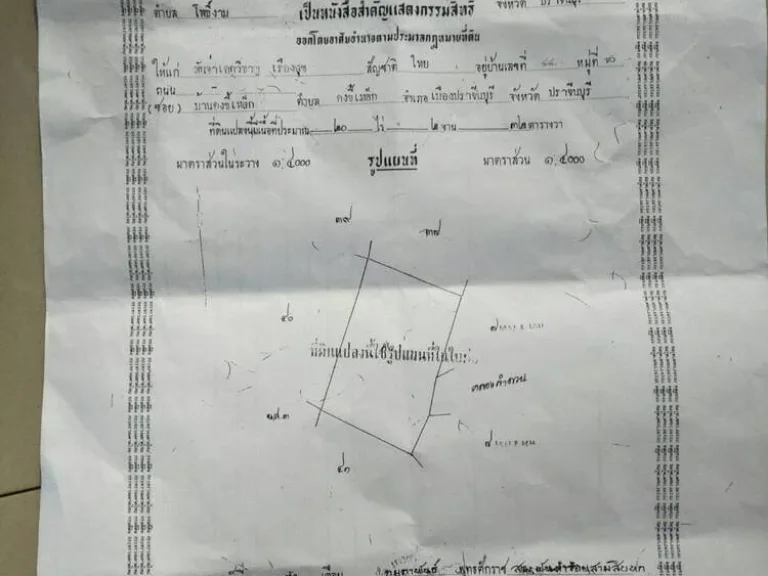 ตำบล โพธิ์งาม เป็นหนังสือสำคัญแสดงกรรมสิทธิ์ จังหวัด ปราจีนบุรี
ออกโดยอาศัยอำนาจตามประมวลกฎหมายที่ดิน
ให้แก่ เรืองสุข สัญชาติ ไทย อยู่บ้านเลขที่ ๔๔ หมู่ที่ ๑๐
ถนน
(ซอย) บ้านดงขี้เหล็ก ตำบล ดงขี้เหล็ก อำเภอ เมืองปราจีนบุรี จังหวัด ปราจีนบุรี
ที่ดินแปลงนี้มีเนื้อที่ประมาณ ๒๐ ไร่ ๒ งาน ๓๒ ตารางวา
มาตราส่วนในระวาง ๑:๔๐๐๐ รูปแผนที่ มาตราส่วน ๑:๔๐๐๐
๓๙ ๓๗
๔๐
ที่ดินแปลงนี้ใช้รูปแผนที่ใน
น.ส.๓
๔๑
กุมภาพันธ์ พุทธศักราช